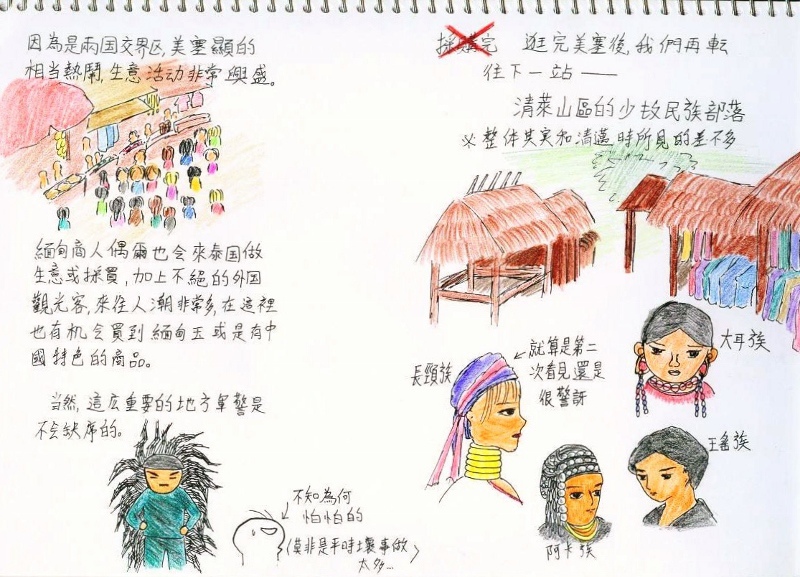 因為是兩国交界区,美塞顯的
相当熱鬧,生意活动非常興盛。
緬甸商人偶爾也会來泰国做
生意或採買,加上不絕的外国
觀光客,來往人潮非常多,在這裡
也有机会買到緬甸玉或是有中
國特色的商品。
当然,這広重要的地方軍警是
不会缺席的。
不知為何
怕怕的
(莫非是平時壞事做
太多…)
逛完美塞後,我們再転
往下一站——
清萊山區的少数民族部落
※整体其实和清邁時所見的差不多
長頸族
就算是第二
次看見還是
很驚訝
大耳族
阿卡族
王瑤族